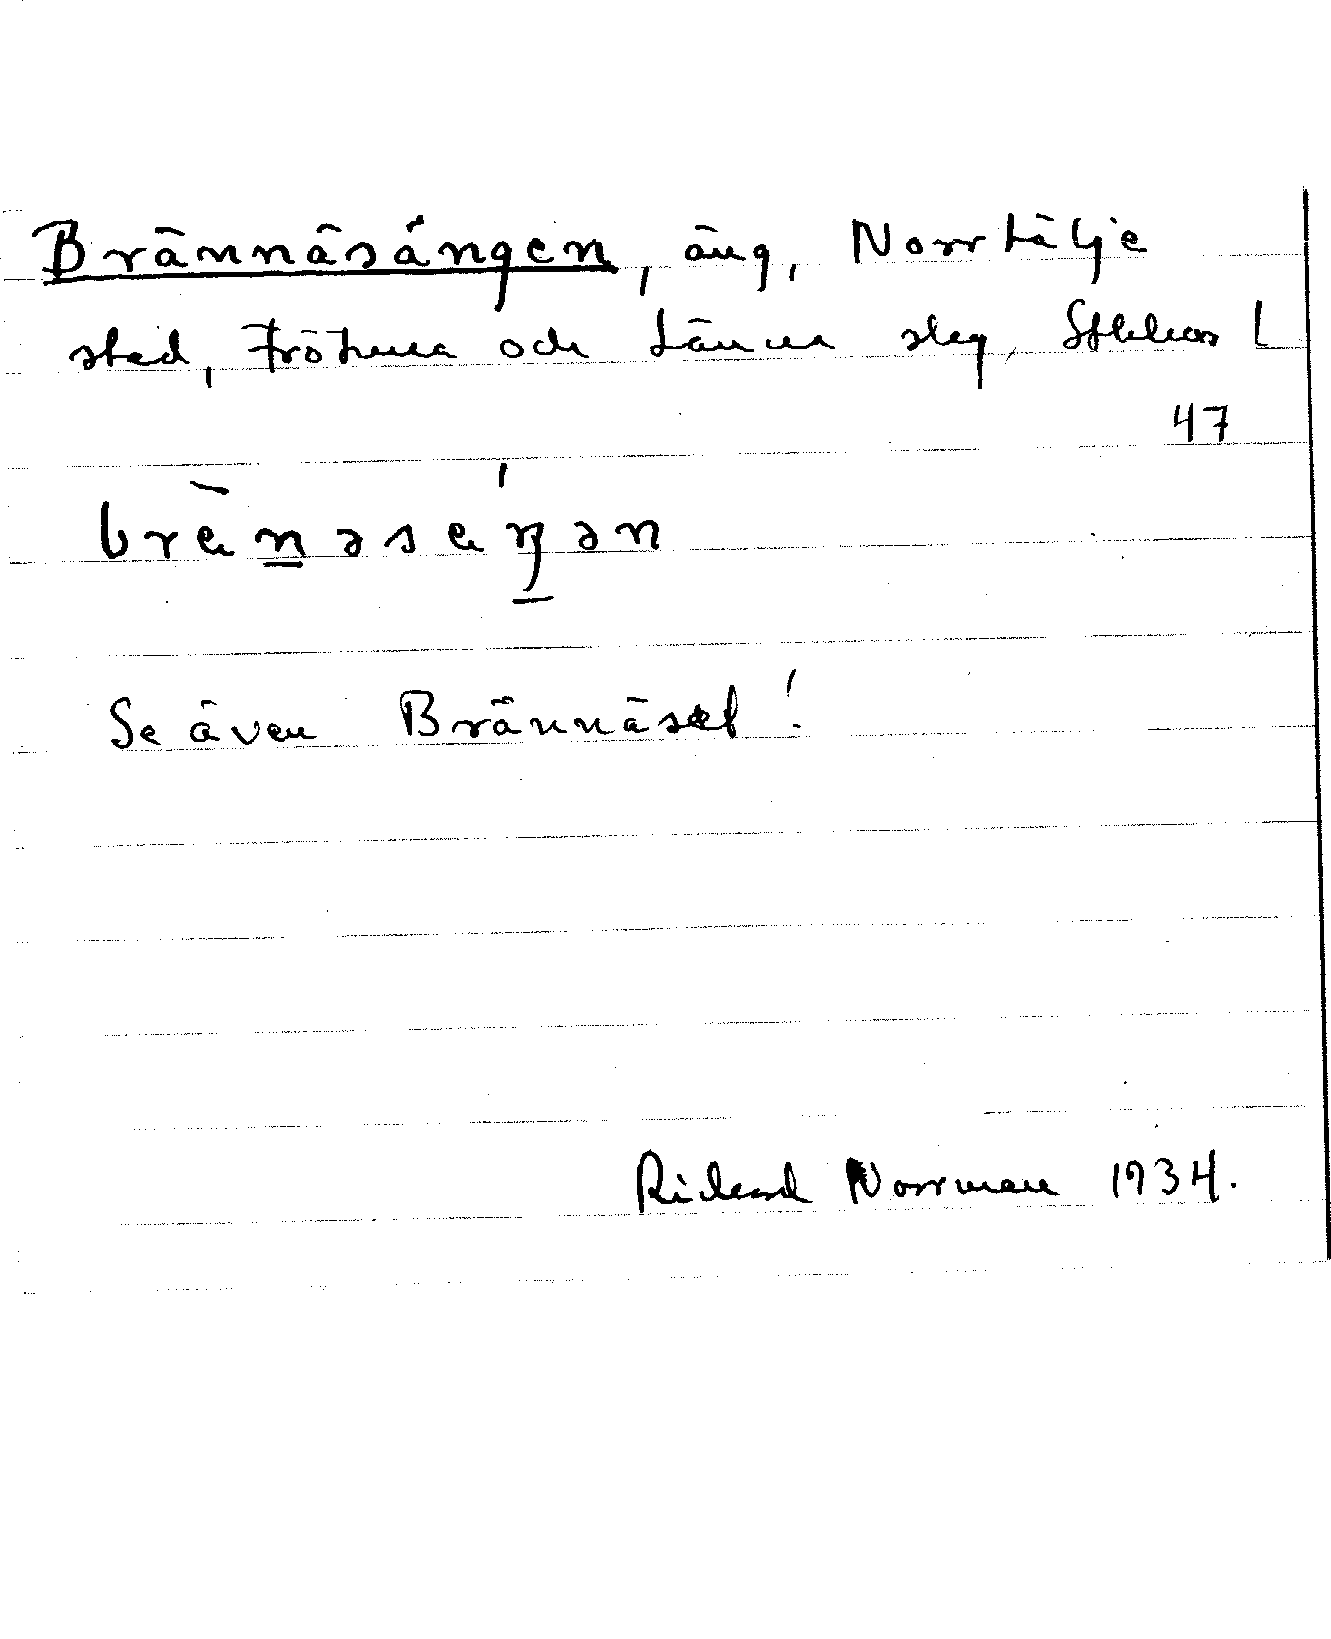 Brännäsängen, äng, Norrtälje
stad, Frötuna och Länna slag, Sthlms L
47
bränəsäŋən
Se även Brännäset!
Rickard Norrman 1934.